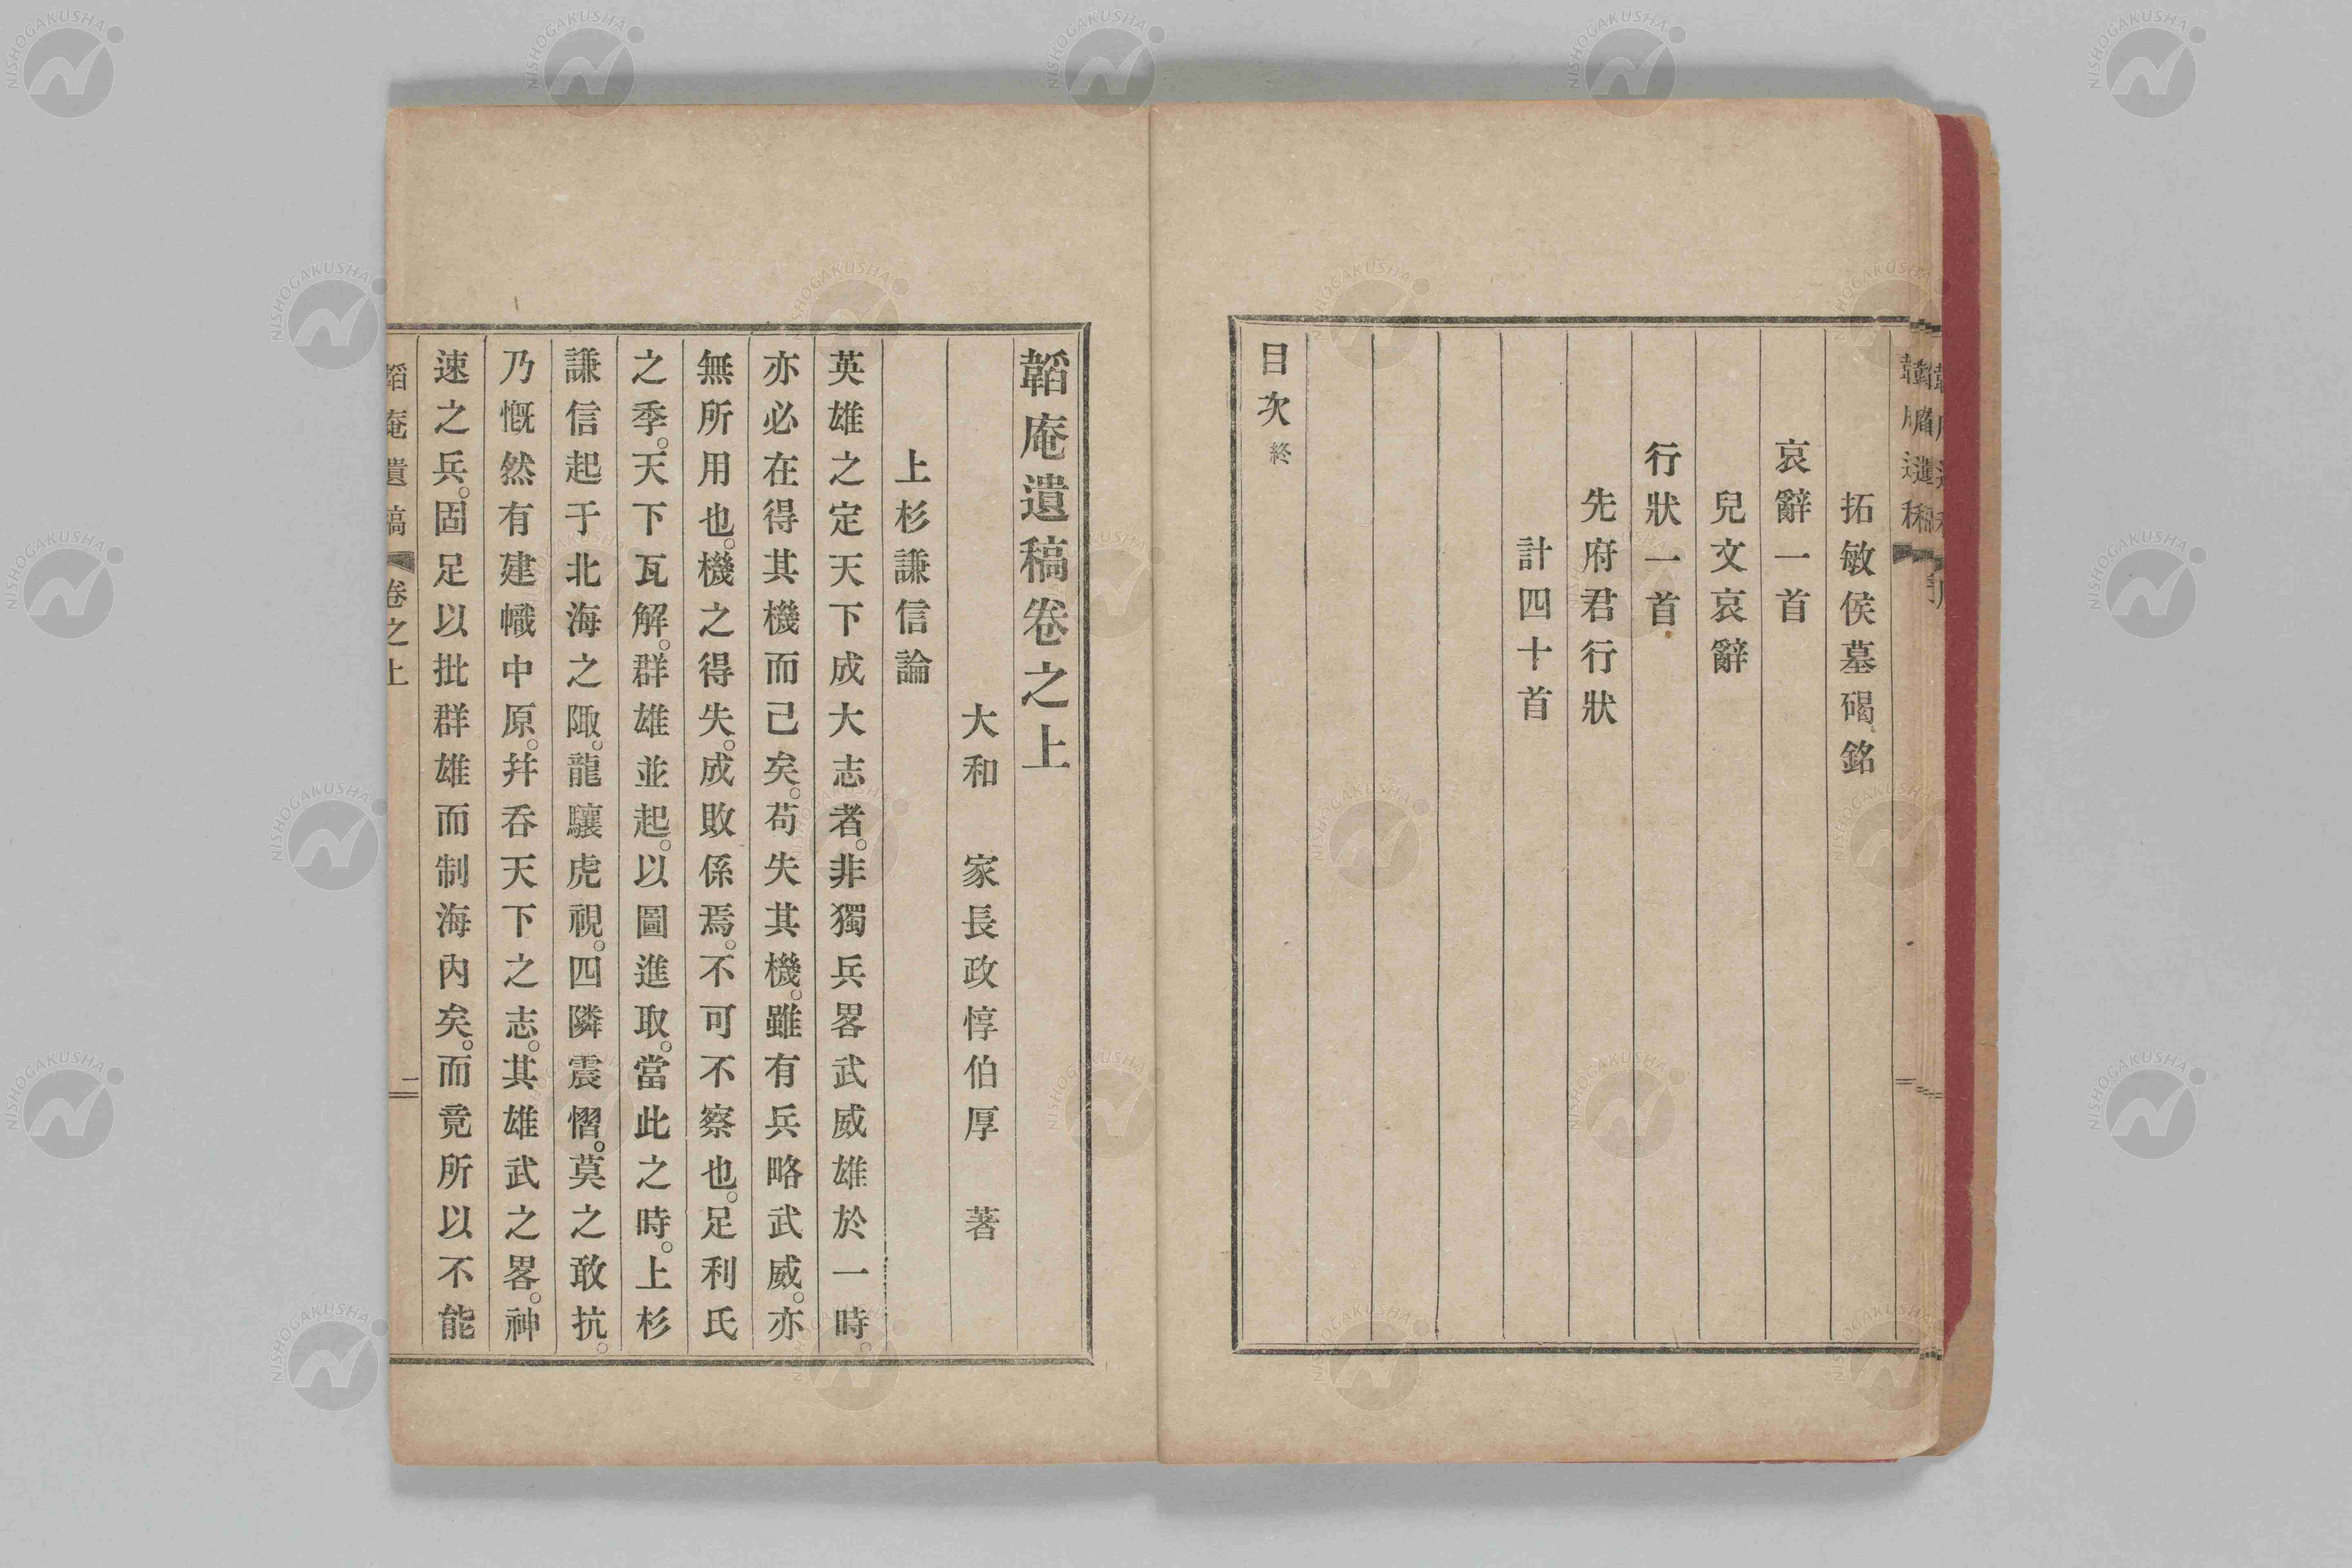 拓敏侯墓碣銘
哀辭一首
兒文哀辭
行狀一首
先府君行狀
計四十首
目次終
韜庵遺稿卷之上
大和 家長政惇伯厚 著
上杉謙信論
英雄之定天下成大志者。非獨兵畧武威雄於一時。
亦必在得其機而已矣。苟失其機。雖有兵略武威。亦
無所用也。機之得失。成敗係焉。不可不察也。足利氏
之季。天下瓦解。群雄並起。以圖進取。當此之時。上杉
謙信起于北海之陬。龍驤虎視。四隣震慴。莫之敢抗。
乃慨然有建幟中原。幷呑天下之志。其雄武之畧。神
速之兵。固足以批群雄而制海內矣。而竟所以不能
韜庵遺稿 卷之上 一
NISHOGAKUSHA